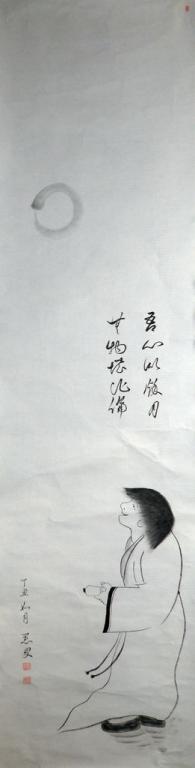 吾心似秋月
無物堪比倫
丁丑如月